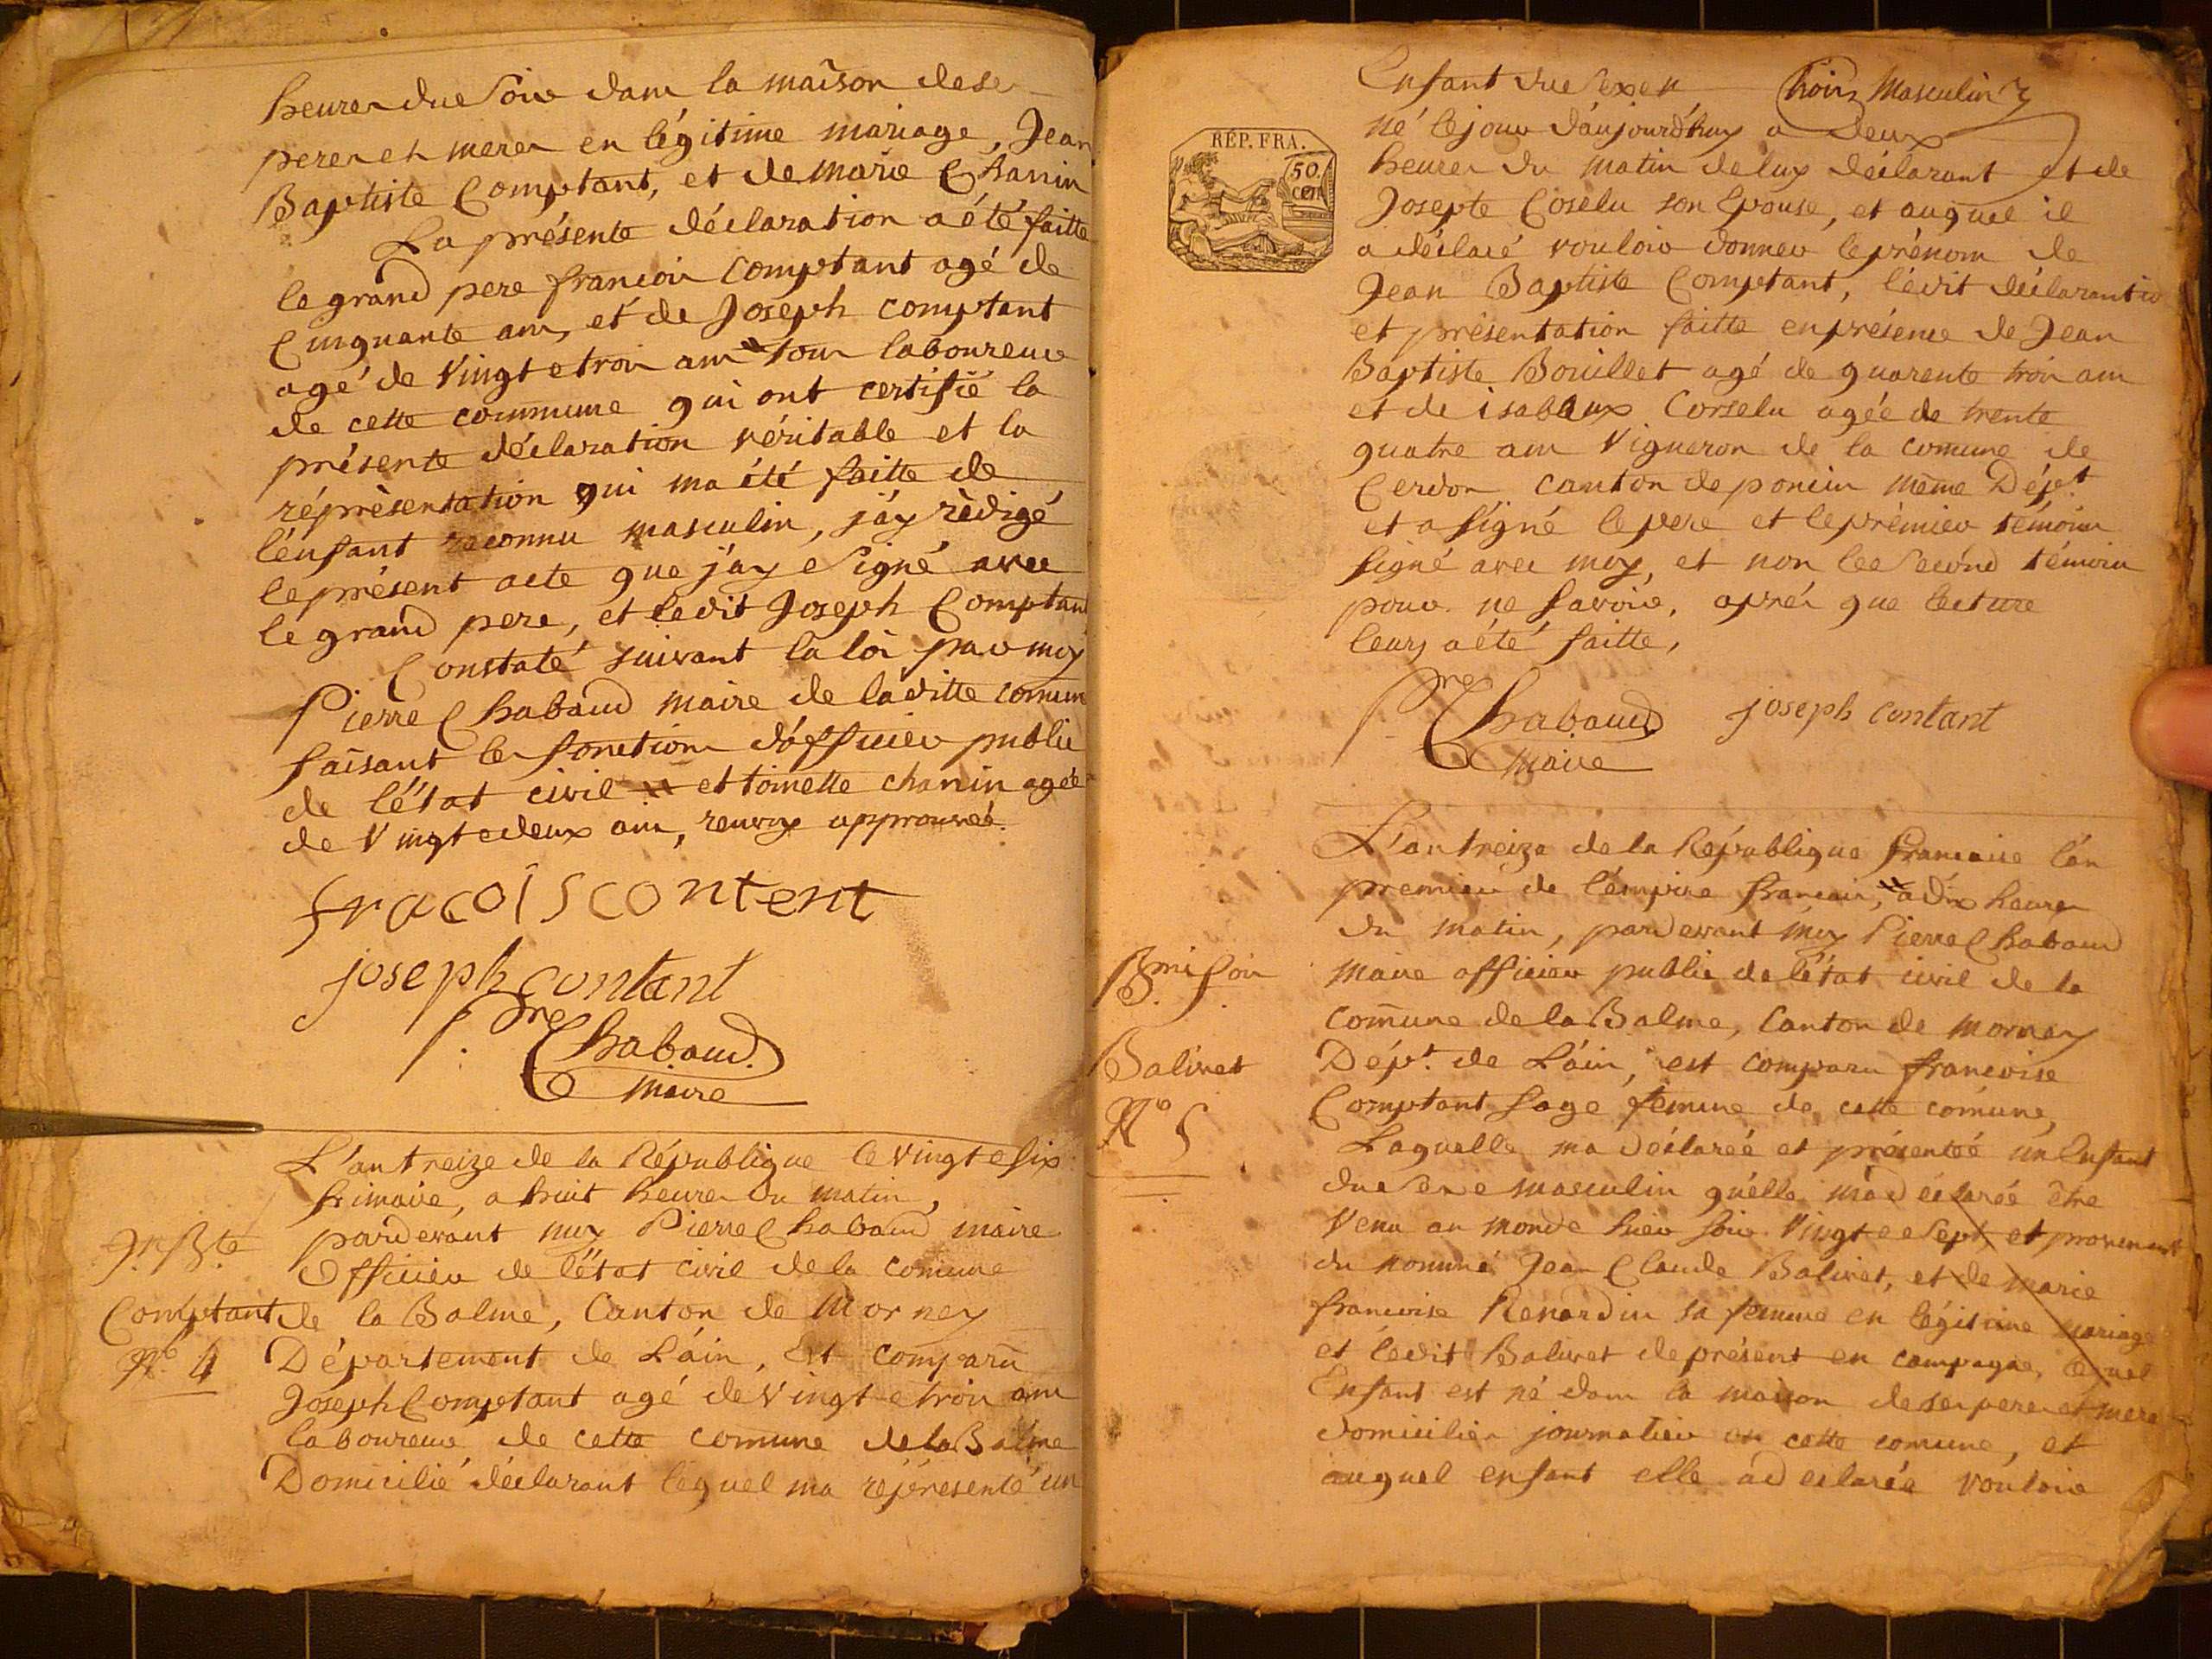 heures du Soir dans la maison de ses
peres et meres en légitime mariage, Jean
Baptiste Comptant, et de marie Chanin
La présente déclaration a été faitte
le grand pere francois Comptant agé de
Cinquante ans, et de Joseph comptant
agé de Vingt e trois ans tous laboureur
de cette commune qui ont certifié la
présente déclaration véritable et la
réprésentation qui ma été faitte de
l'énfant reconnu masculin, j'ay rédigé
le présent acte que j'ay e Signé avec
le grand pere, et ledit Joseph Comptant
Constaté suivant la loi par moy
Pierre Chabaud maire de laditte comune
faisant les fonctions d'officier public
de l'état civil et toinette chanin agée
de Vingt e deux ans, renvoy approuvé.
fracois content
joseph contant
P. Chabaud
maire
L'an treize de la République le Vingt e Six
frimaire, a huit heures du matin,
pardevant moy Pierre Chabaud maire
Officier de l'état civil de la comune
de la Balme, Canton de Mornay
Département de L'ain, Est comparu
Joseph Comptant agé de Vingt e trois ans
laboureur de cette comune de la Balme
Domicilié déclarant lequel ma réprésenté un
Jn Bte
Comptant
No 4
RÉP. FRA.
50.
CEN
Enfant du Sexe trois Masculin
né le jour d'aujourd'huy a Deux
heures du matin de luy déclarant et de
Josepte Coselu son Epouse, et auquel il
a déclaré vouloir donner le prénom de
Jean Baptiste Comptant, lédit déclarant
et présentation faitte en présence de Jean
Baptiste Bouillet agé de quarente trois ans
et de isabeaux Corselu agée de trente
quatre ans Vigneron de la comune de
Cerdon canton de poncin même Dépt
et a signé le pere et le prémier témoin
signé avec moy, et non le Second témoin
pour ne savoir, aprés que lecture
leurs a été faitte,
P. Chabaud joseph contant
Maire
L'an treize de la République francaise l'an
premier de l'émpire francais, a dix heures
du matin, pardevant moy Pierre Chabaud
Maire officier public de l'état civil de la
comune de la Balme, Canton de mornay
Dépt. de L'áin, est comparu francoise
Comptant sage femme de cette comune,
Laquelle ma déclarée et présentée un Enfant
du Sexe masculin qu'elle m'a déclarée être
Venu au monde hier soir Vingt e Sept, et provenant
du nommé Jean Claude Balivet, et de marie
francoise Renardin sa femme en légitime mariage
et lédit Balivet de présent en campagne, lequel
Enfant est né dans la maison de ses peres et mere
domiciliés journalier en cette comune, et
auquel enfant elle a déclarée vouloir
Balivet
No 5